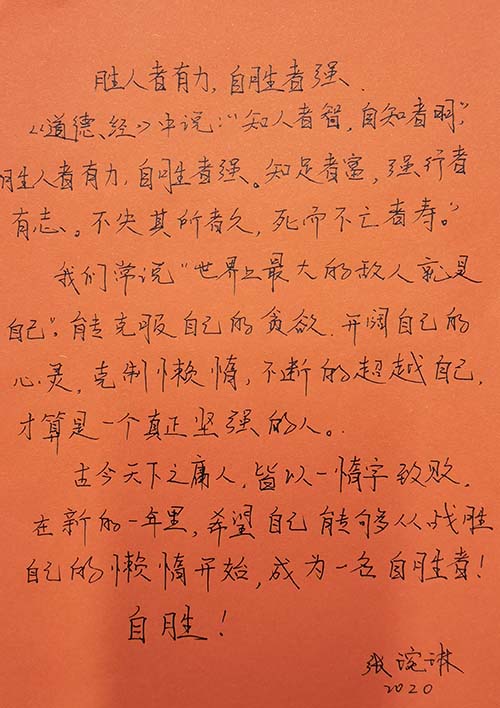 胜人者有力，自胜者强.
《道德经》中说："知人者智，自知者明",
胜人者有力，自胜者强。知足者富，强行者
有志。不失其所者久，死而不亡者寿。"
我们常说"世界上最大的敌人就是
自己"。能克服自己的贪欲.开阔自己的
心灵，克制懒惰，不断的超越自己，
才算是一个真正坚强的人。
古今天下之庸人，皆以一惰字致败，
在新的一年里，希望自己能够从战胜
自己的懒惰开始，成为一名自胜者！
自胜！
张 琳
2020